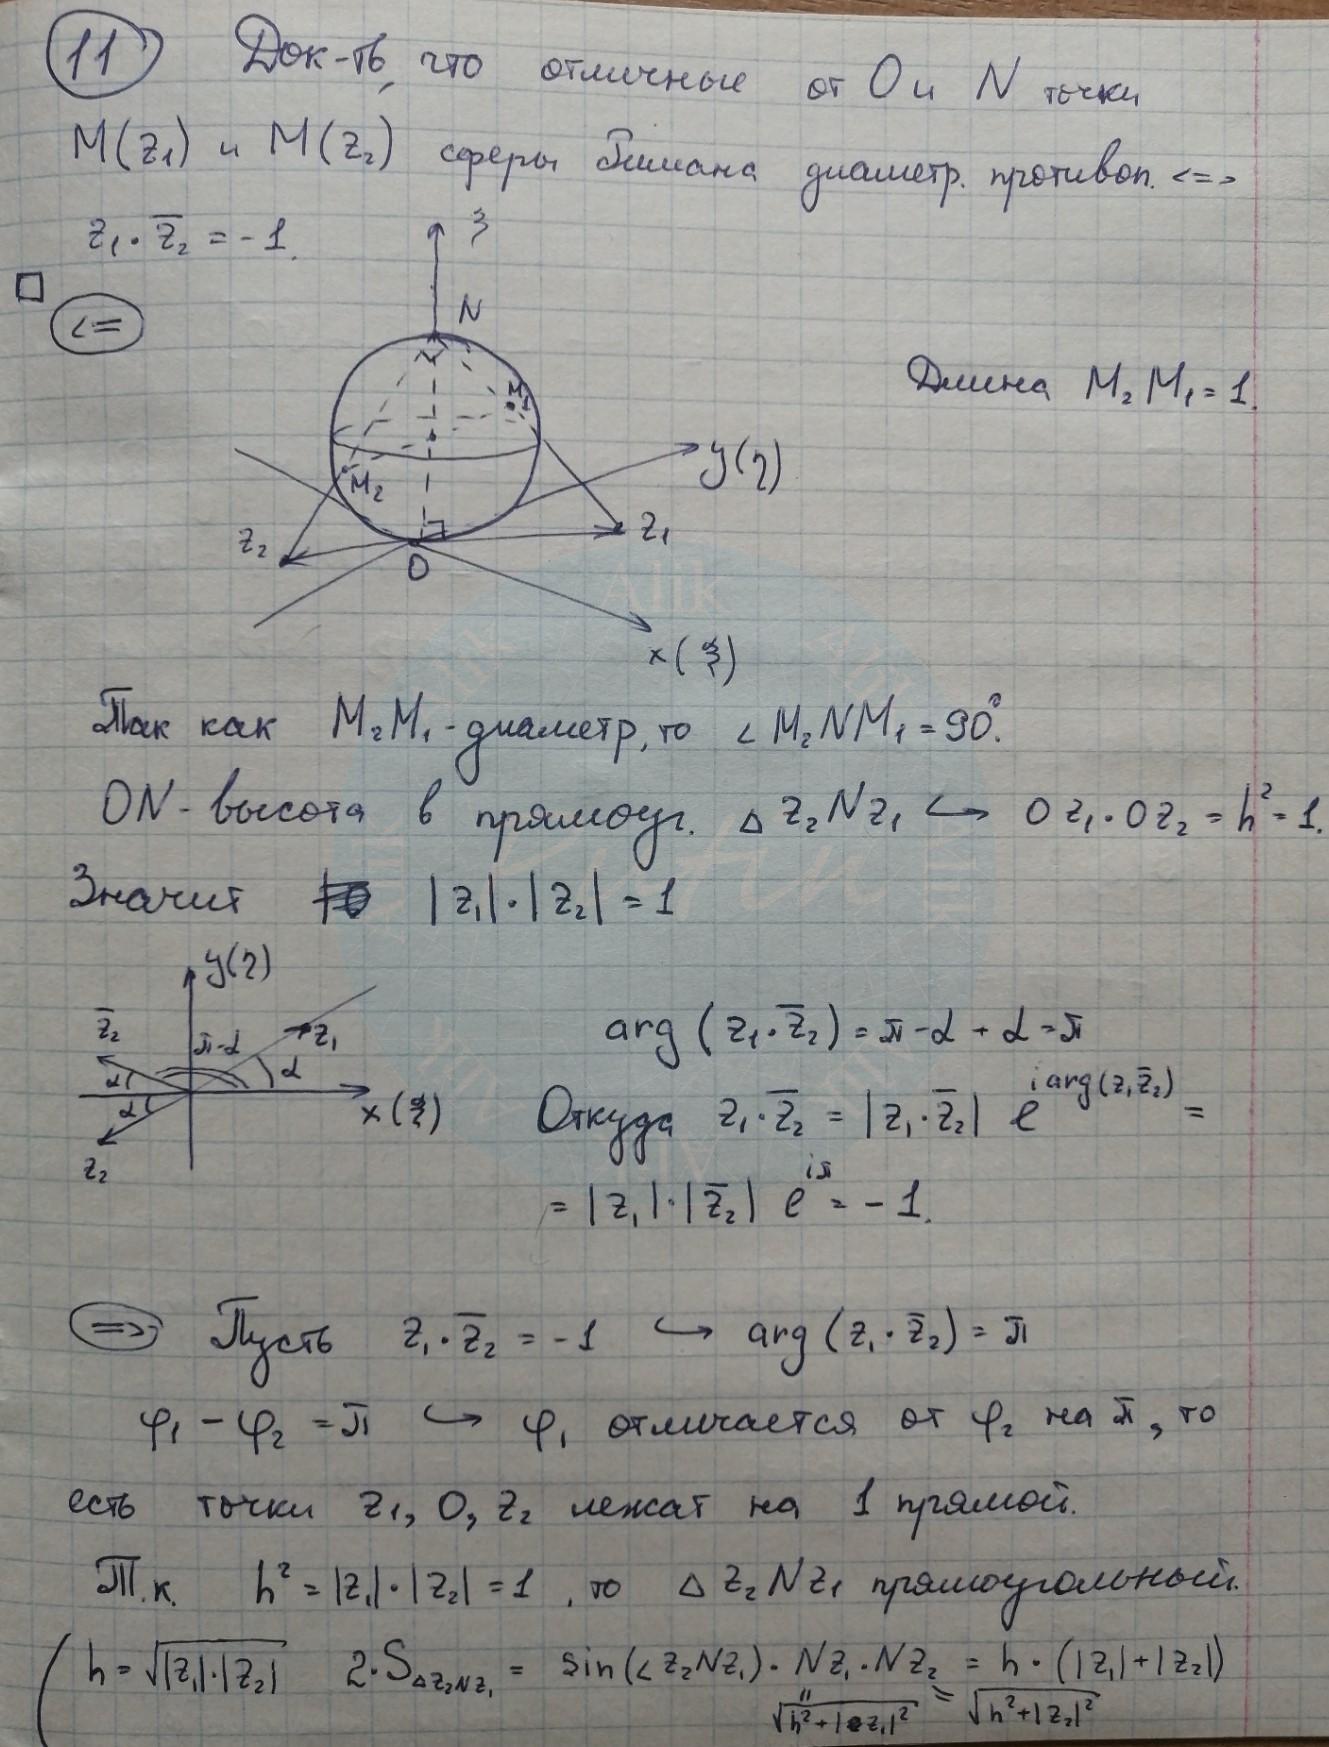 11 Док-ть, что отличные от O и N точки
M(z₁) и M(z₂) сферы Римана диаметр. противоп. <=>
z₁·z̅₂ = -1.
<=
ζ
N
Длина M₂M₁ = 1.
M₁
y(η)
M₂
z₂
z₁
O
x(ξ)
Так как M₂M₁ - диаметр, то ∠M₂NM₁ = 90°.
ON - высота в прямоуг. △ z₂Nz₁ ↪ Oz₁·Oz₂ = h² = 1.
Значит |z₁|·|z₂| = 1
y(η)
z̅₂
π-α
z₁
α
α
α
x(ξ)
z₂
arg(z₁·z̅₂) = π-α + α = π
Откуда z₁·z̅₂ = |z₁·z̅₂| e^{i arg(z₁z̅₂)} =
= |z₁|·|z̅₂| e^{iπ} = -1.
=> Пусть z₁·z̅₂ = -1 ↪ arg(z₁·z̅₂) = π
φ₁ - φ₂ = π ↪ φ₁ отличается от φ₂ на π, то
есть точки z₁, O, z₂ лежат на 1 прямой.
Т.к. h² = |z₁|·|z₂| = 1, то △ z₂Nz₁ прямоугольный.
( h = √(|z₁|·|z₂|) 2·S△z₂Nz₁ = sin(∠z₂Nz₁)·Nz₁·Nz₂ = h·(|z₁|+|z₂|)
√(h²+|z₁|²) = √(h²+|z₂|²)
Alik